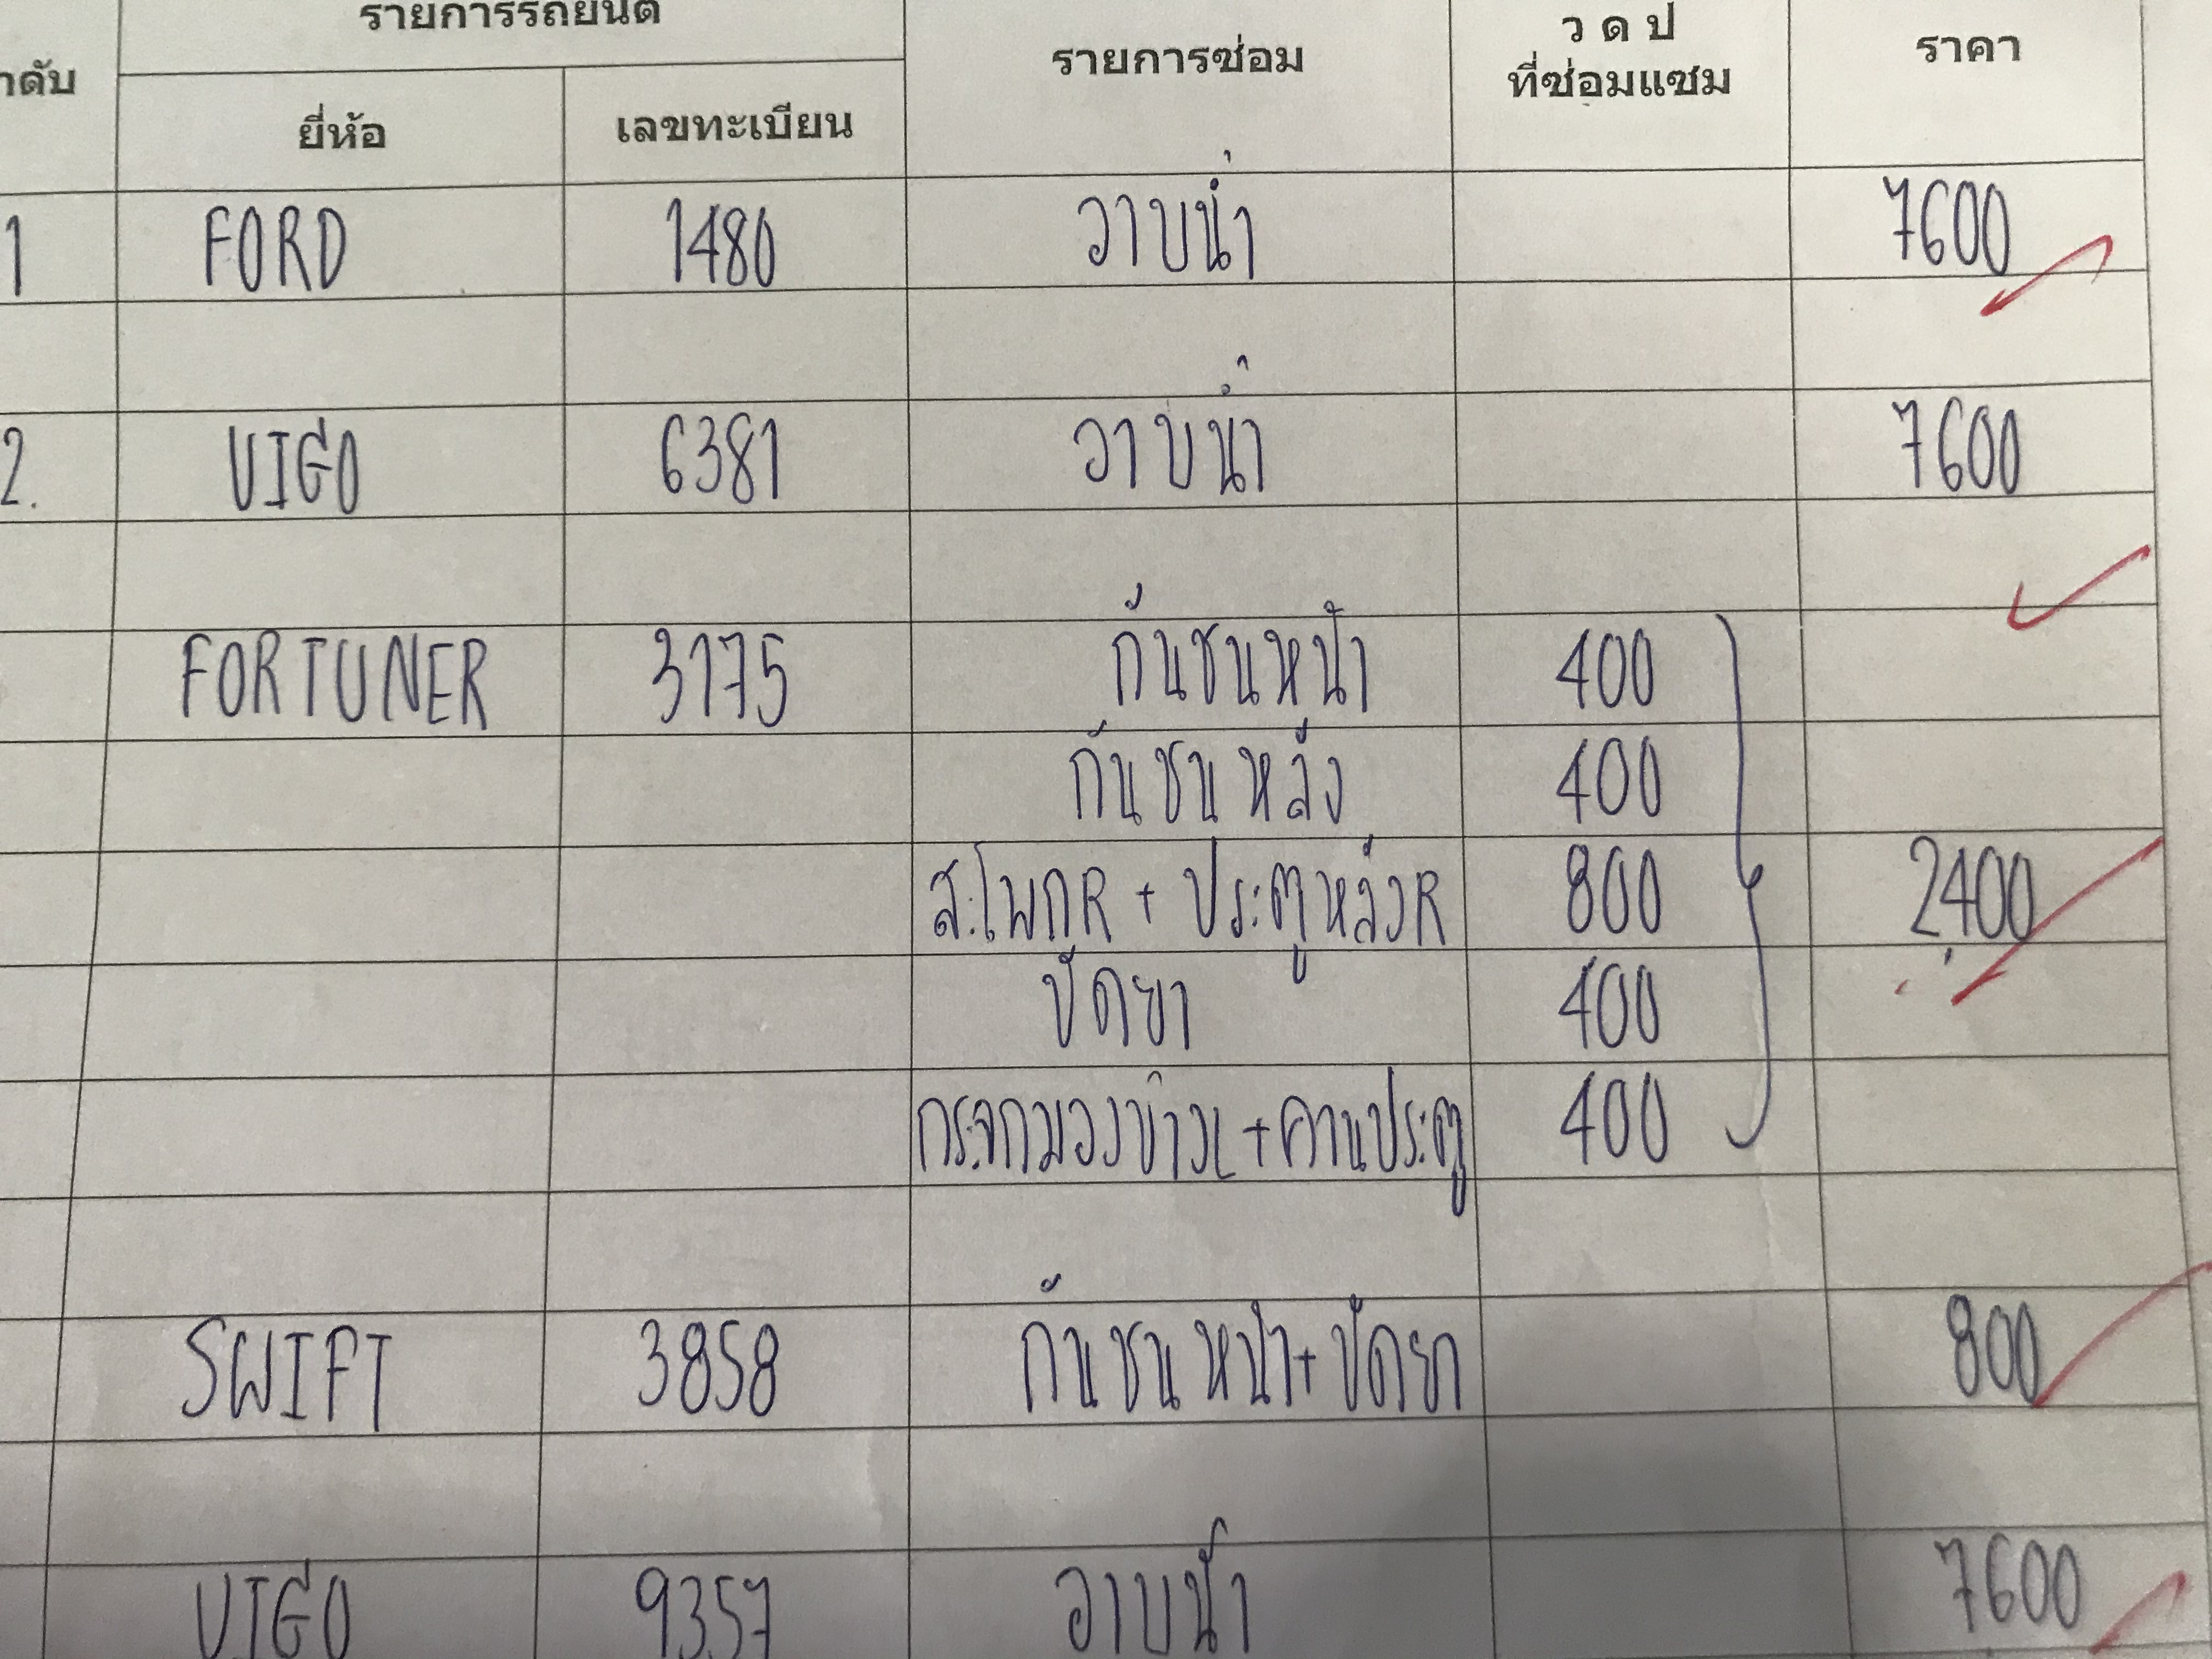 รายการรถยนต์ รายการซ่อม ว ด ป ราคา
าดับ ยี่ห้อ เลขทะเบียน ที่ซ่อมแซม
1 FORD 1480 อาบน้ำ 7600
2. VIGO 6381 อาบน้ำ 7600
FORTUNER 3175 กันชนหน้า 400
กันชนหลัง 400
ส.โพกR + ประตูหลังR 800 2,400
ปัดยา 400
กระจกมองข้างL + คานประตู 400
SWIFT 3858 กันชนหน้า + ปัดยา 800
VIGO 9357 อาบน้ำ 7600